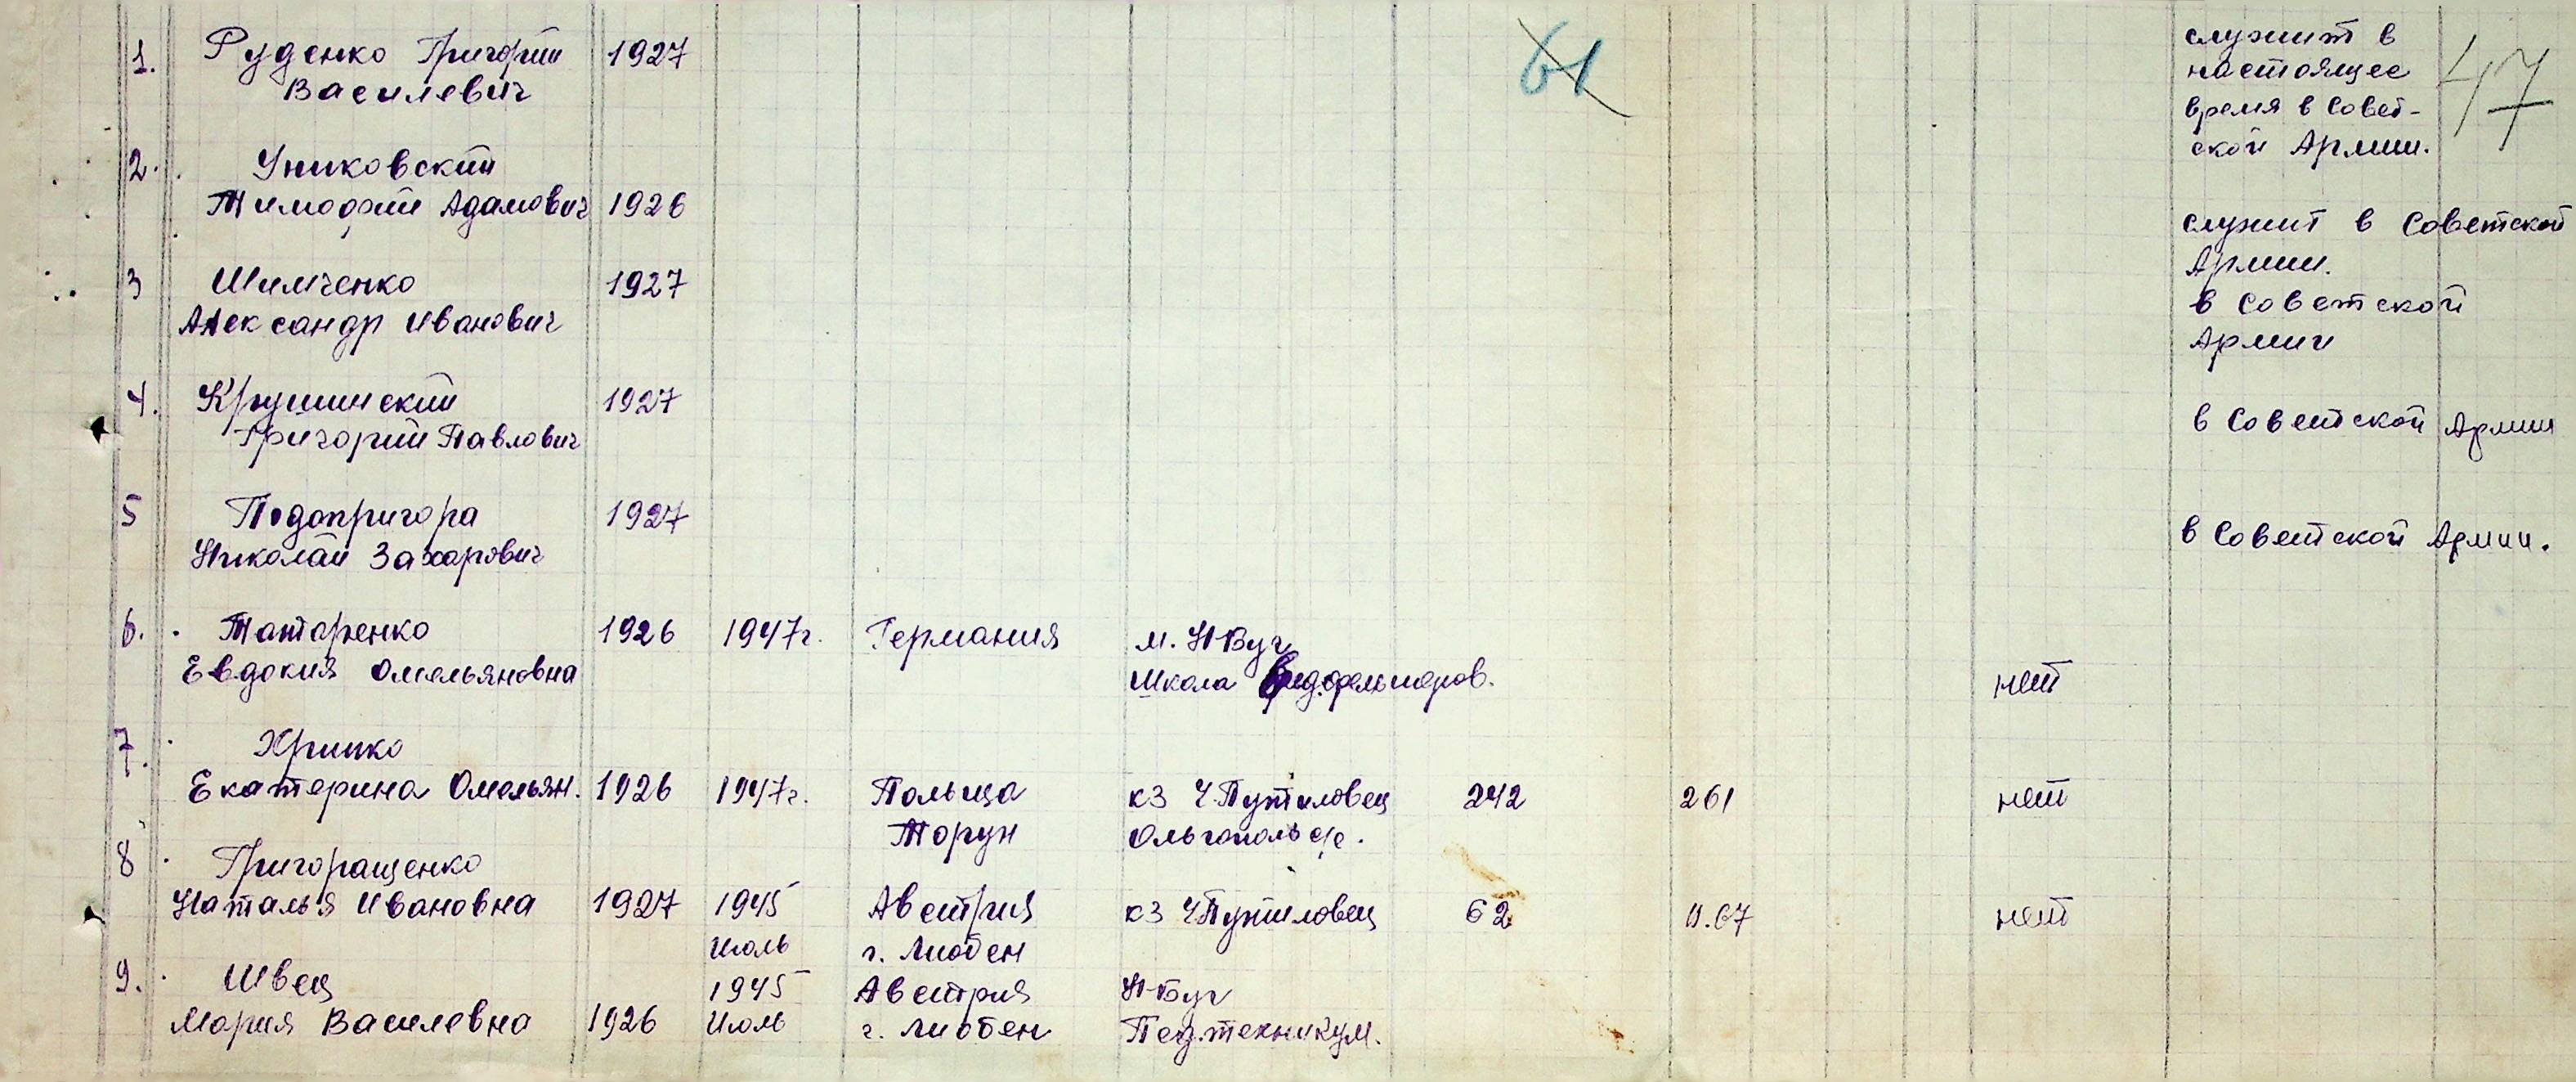 61
47
1. Руденко Григорий 1927 служит в
Василевич настоящее
время в Совет-
ской Армии.
2. Униковский
Тимофий Адамович 1926 служит в Советской
Армии.
3 Шимченко 1927 в Советской
Александр Иванович Армии
4. Крушинский 1927 в Советской Армии
Григорий Павлович
5 Подопригора 1927 в Советской Армии.
Николай Захарович
6. Татаренко 1926 1947г. Германия м. Н-Буг
Евдокия Омельяновна Школа нет
7. Хрипко
Екатерина Омельян. 1926 1947г. Польща кз Ч.Путиловец 242 261 нет
Торун Ольгополь с/с.
8 Григоращенко
Наталья Ивановна 1927 1945 Австрия кз Ч.Путиловец 62 0.67 нет
Июль г. Лиобен
9. Швец 1945 Австрия Н-Буг
Мария Василевна 1926 Июль г. Лиобен Пед.техникум.